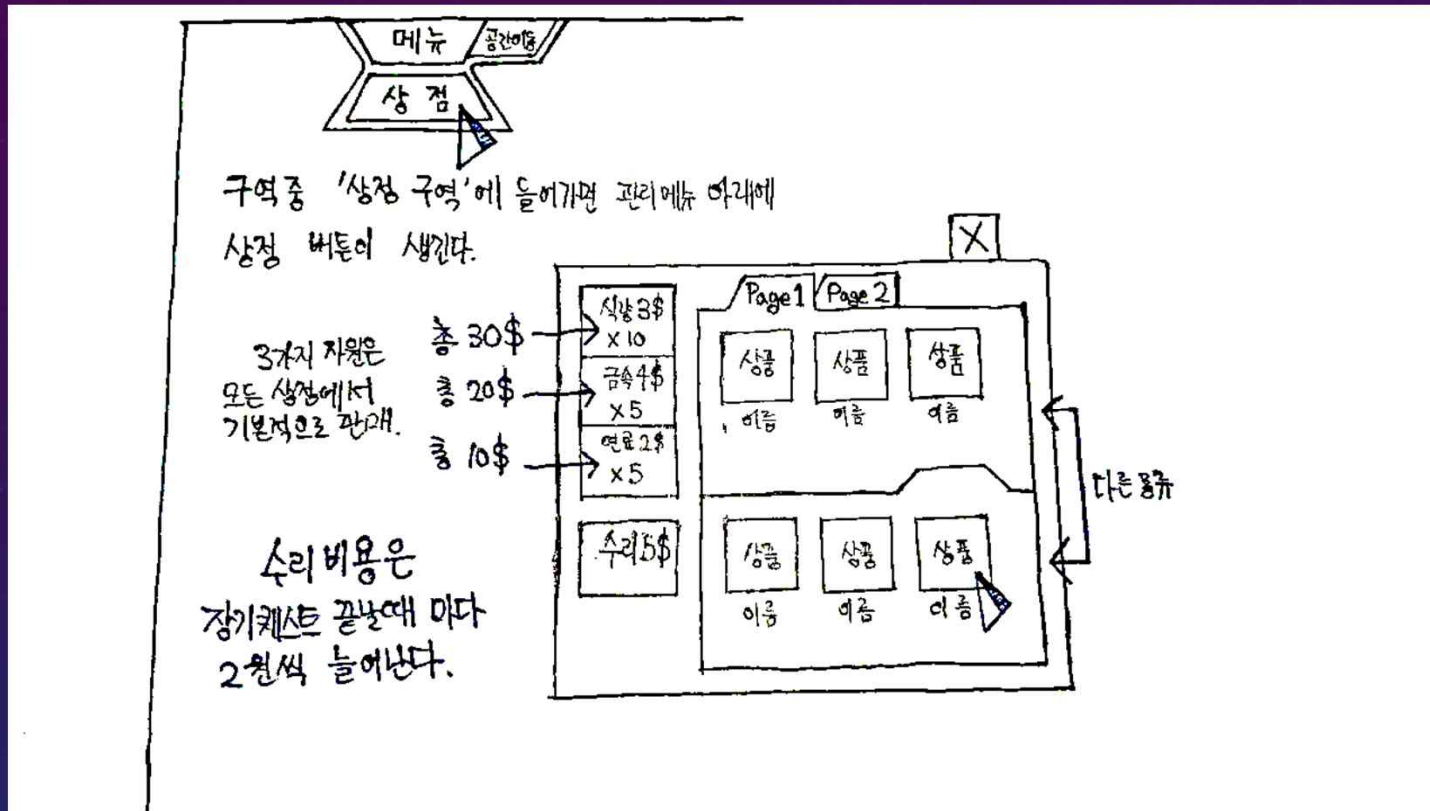 메뉴
공간이동
상점
구역중 '상점 구역'에 들어가면 관리메뉴 아래에
상점 버튼이 생긴다.
X
3가지 자원은
모든 상점에서
기본적으로 판매.
총 30$
총 20$
총 10$
식량 3$
x 10
금속 4$
x 5
연료 2$
x 5
수리 5$
Page 1
Page 2
상품
상품
상품
이름
이름
이름
상품
상품
상품
이름
이름
이름
다른 종류
수리 비용은
장기퀘스트 끝날때 마다
2원씩 늘어난다.